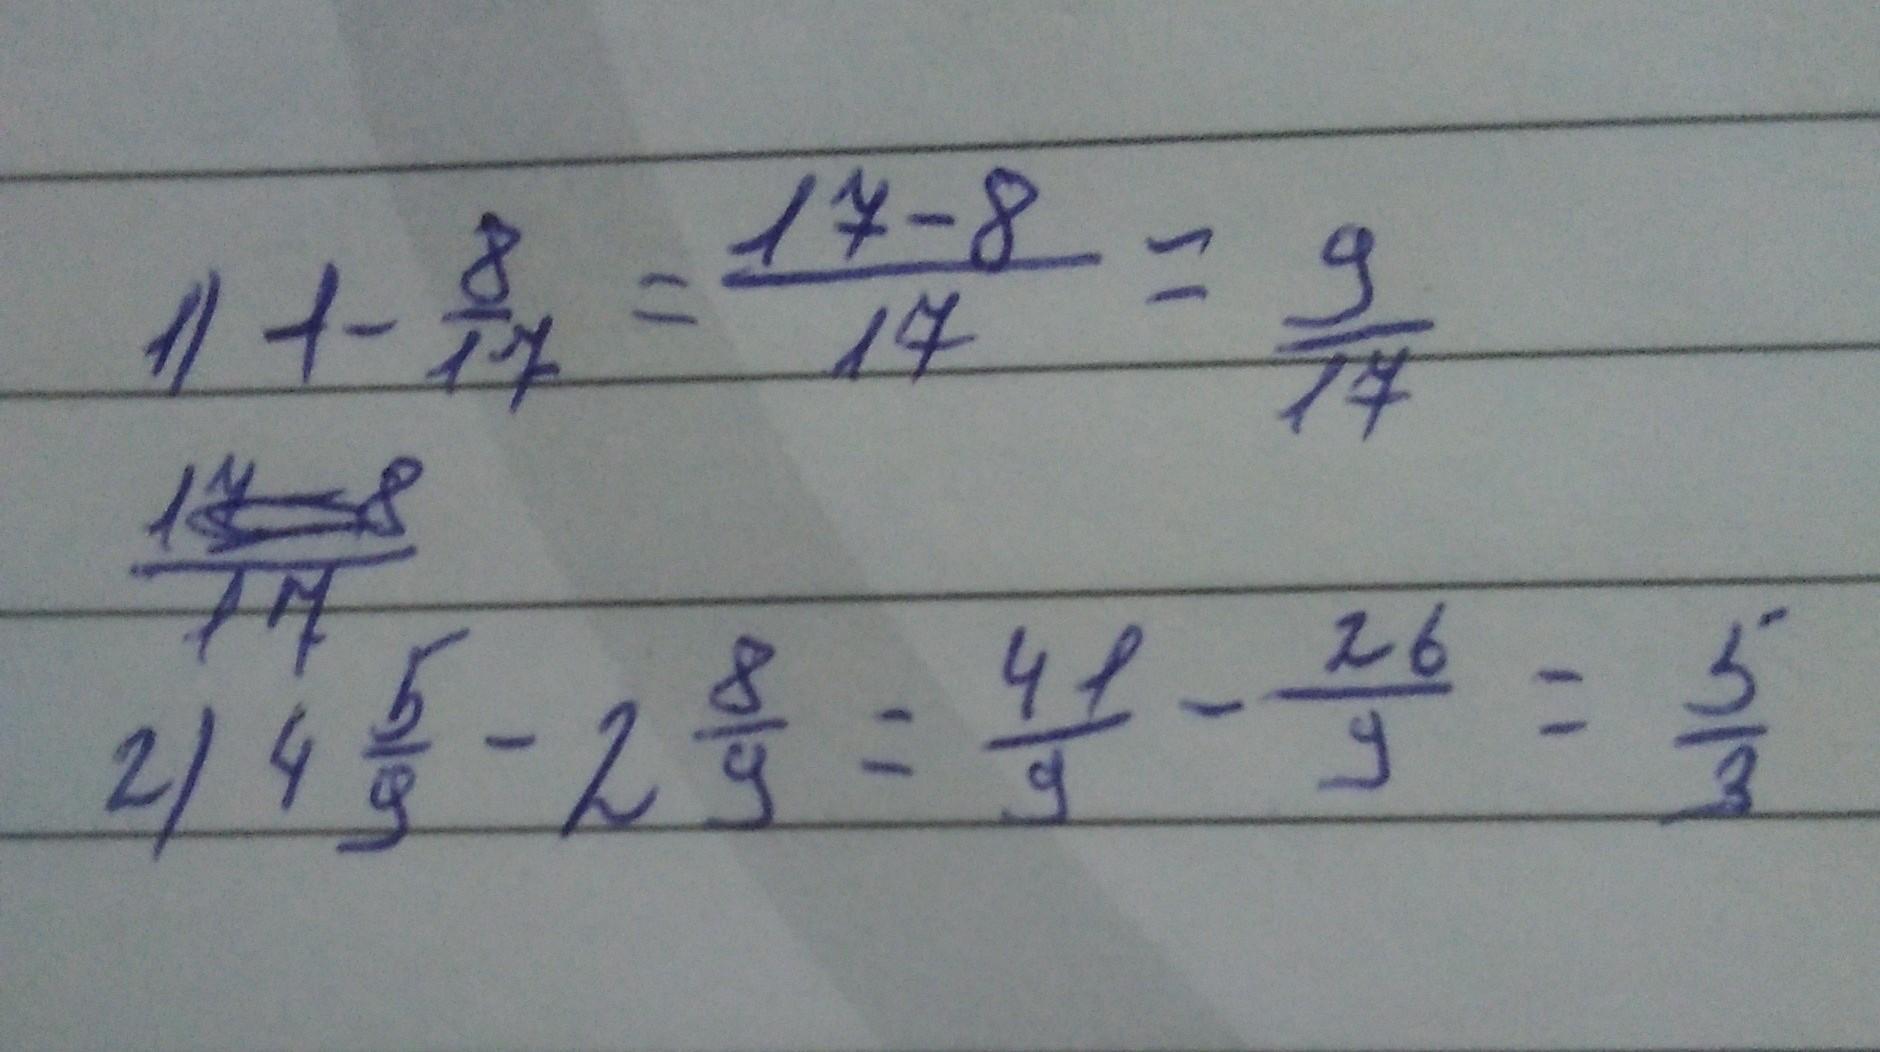 1) 1 - 8/17 = 17-8/17 = 9/17
17-8/17
2) 4 5/9 - 2 8/9 = 41/9 - 26/9 = 5/3